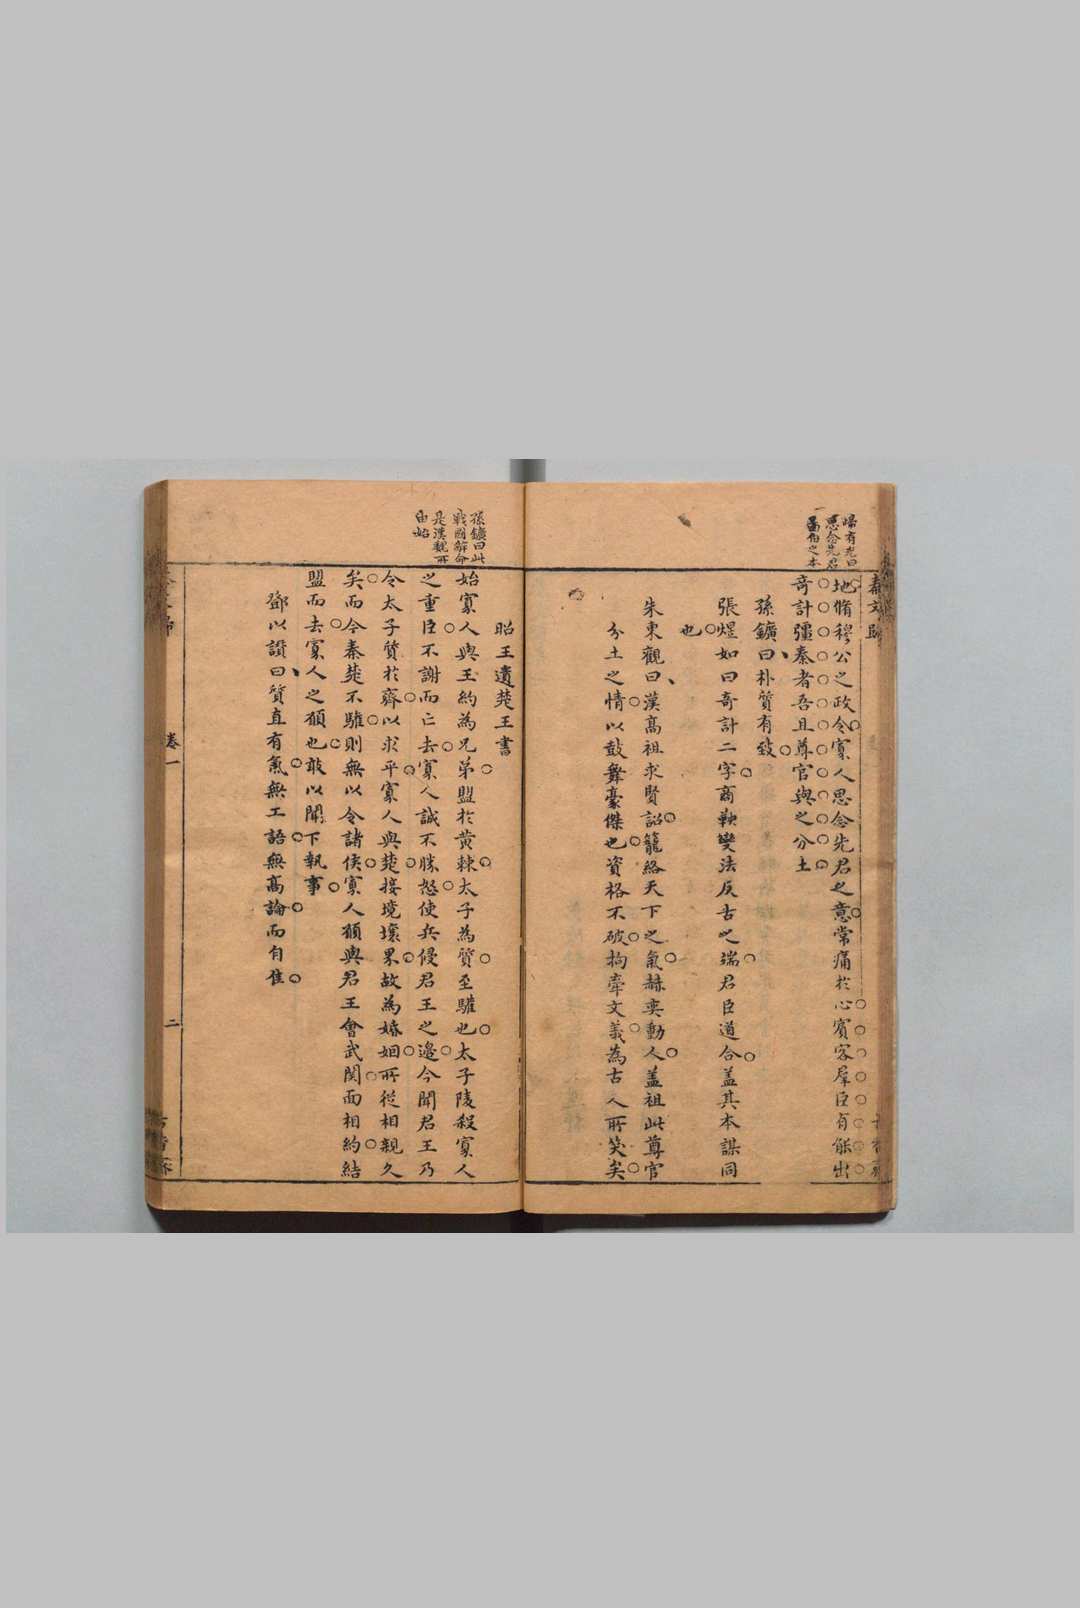 秦文歸
歸有光曰
思念先君
一
啚伯之本
地脩穆公之政令寡人思念先君之意常痛扵心賓客羣臣有能出
奇計彊秦者吾且尊官與之分土
孫鑛曰朴質有致
張煜如曰奇計二字商鞅變法反古之端君臣道合盖其本謀同
也
朱東觀曰漢高祖求賢詔籠絡天下之氣赫奕動人盖祖此尊官
分土之情以鼓舞豪傑也資格不破拘牽文義為古人所笑矣
孫鑛曰此
戰國辭命
是漢魏所
由始
昭王遺楚王書
始寡人與王約為兄弟盟於黄棘太子為質至驩也太子陵殺寡人
之重臣不謝而亡去寡人誠不勝怒使兵侵君王之邊今聞君王乃
令太子質扵齊以求平寡人與楚接境壤界故為婚姻所從相親久
矣而今秦楚不驩則無以令諸侯寡人願與君王會武関面相約結
盟而去寡人之願也敢以聞下執事
鄧以讚曰質直有氣無工語無高論而自佳
卷一
二